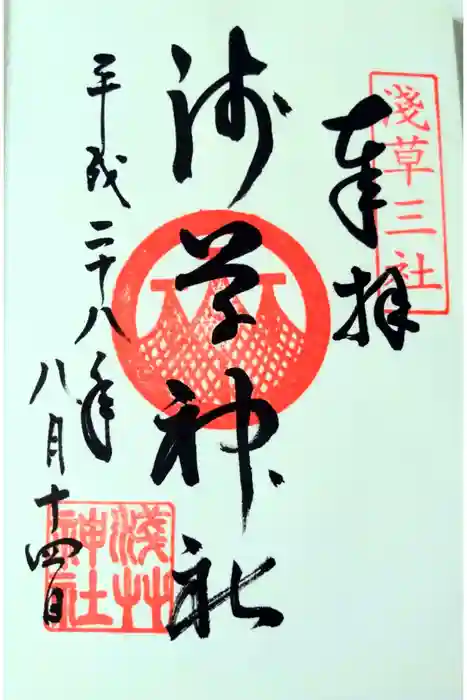 淺草三社
奉拝
浅草神社
平成二十八年
八月十四日
淺艸
神社